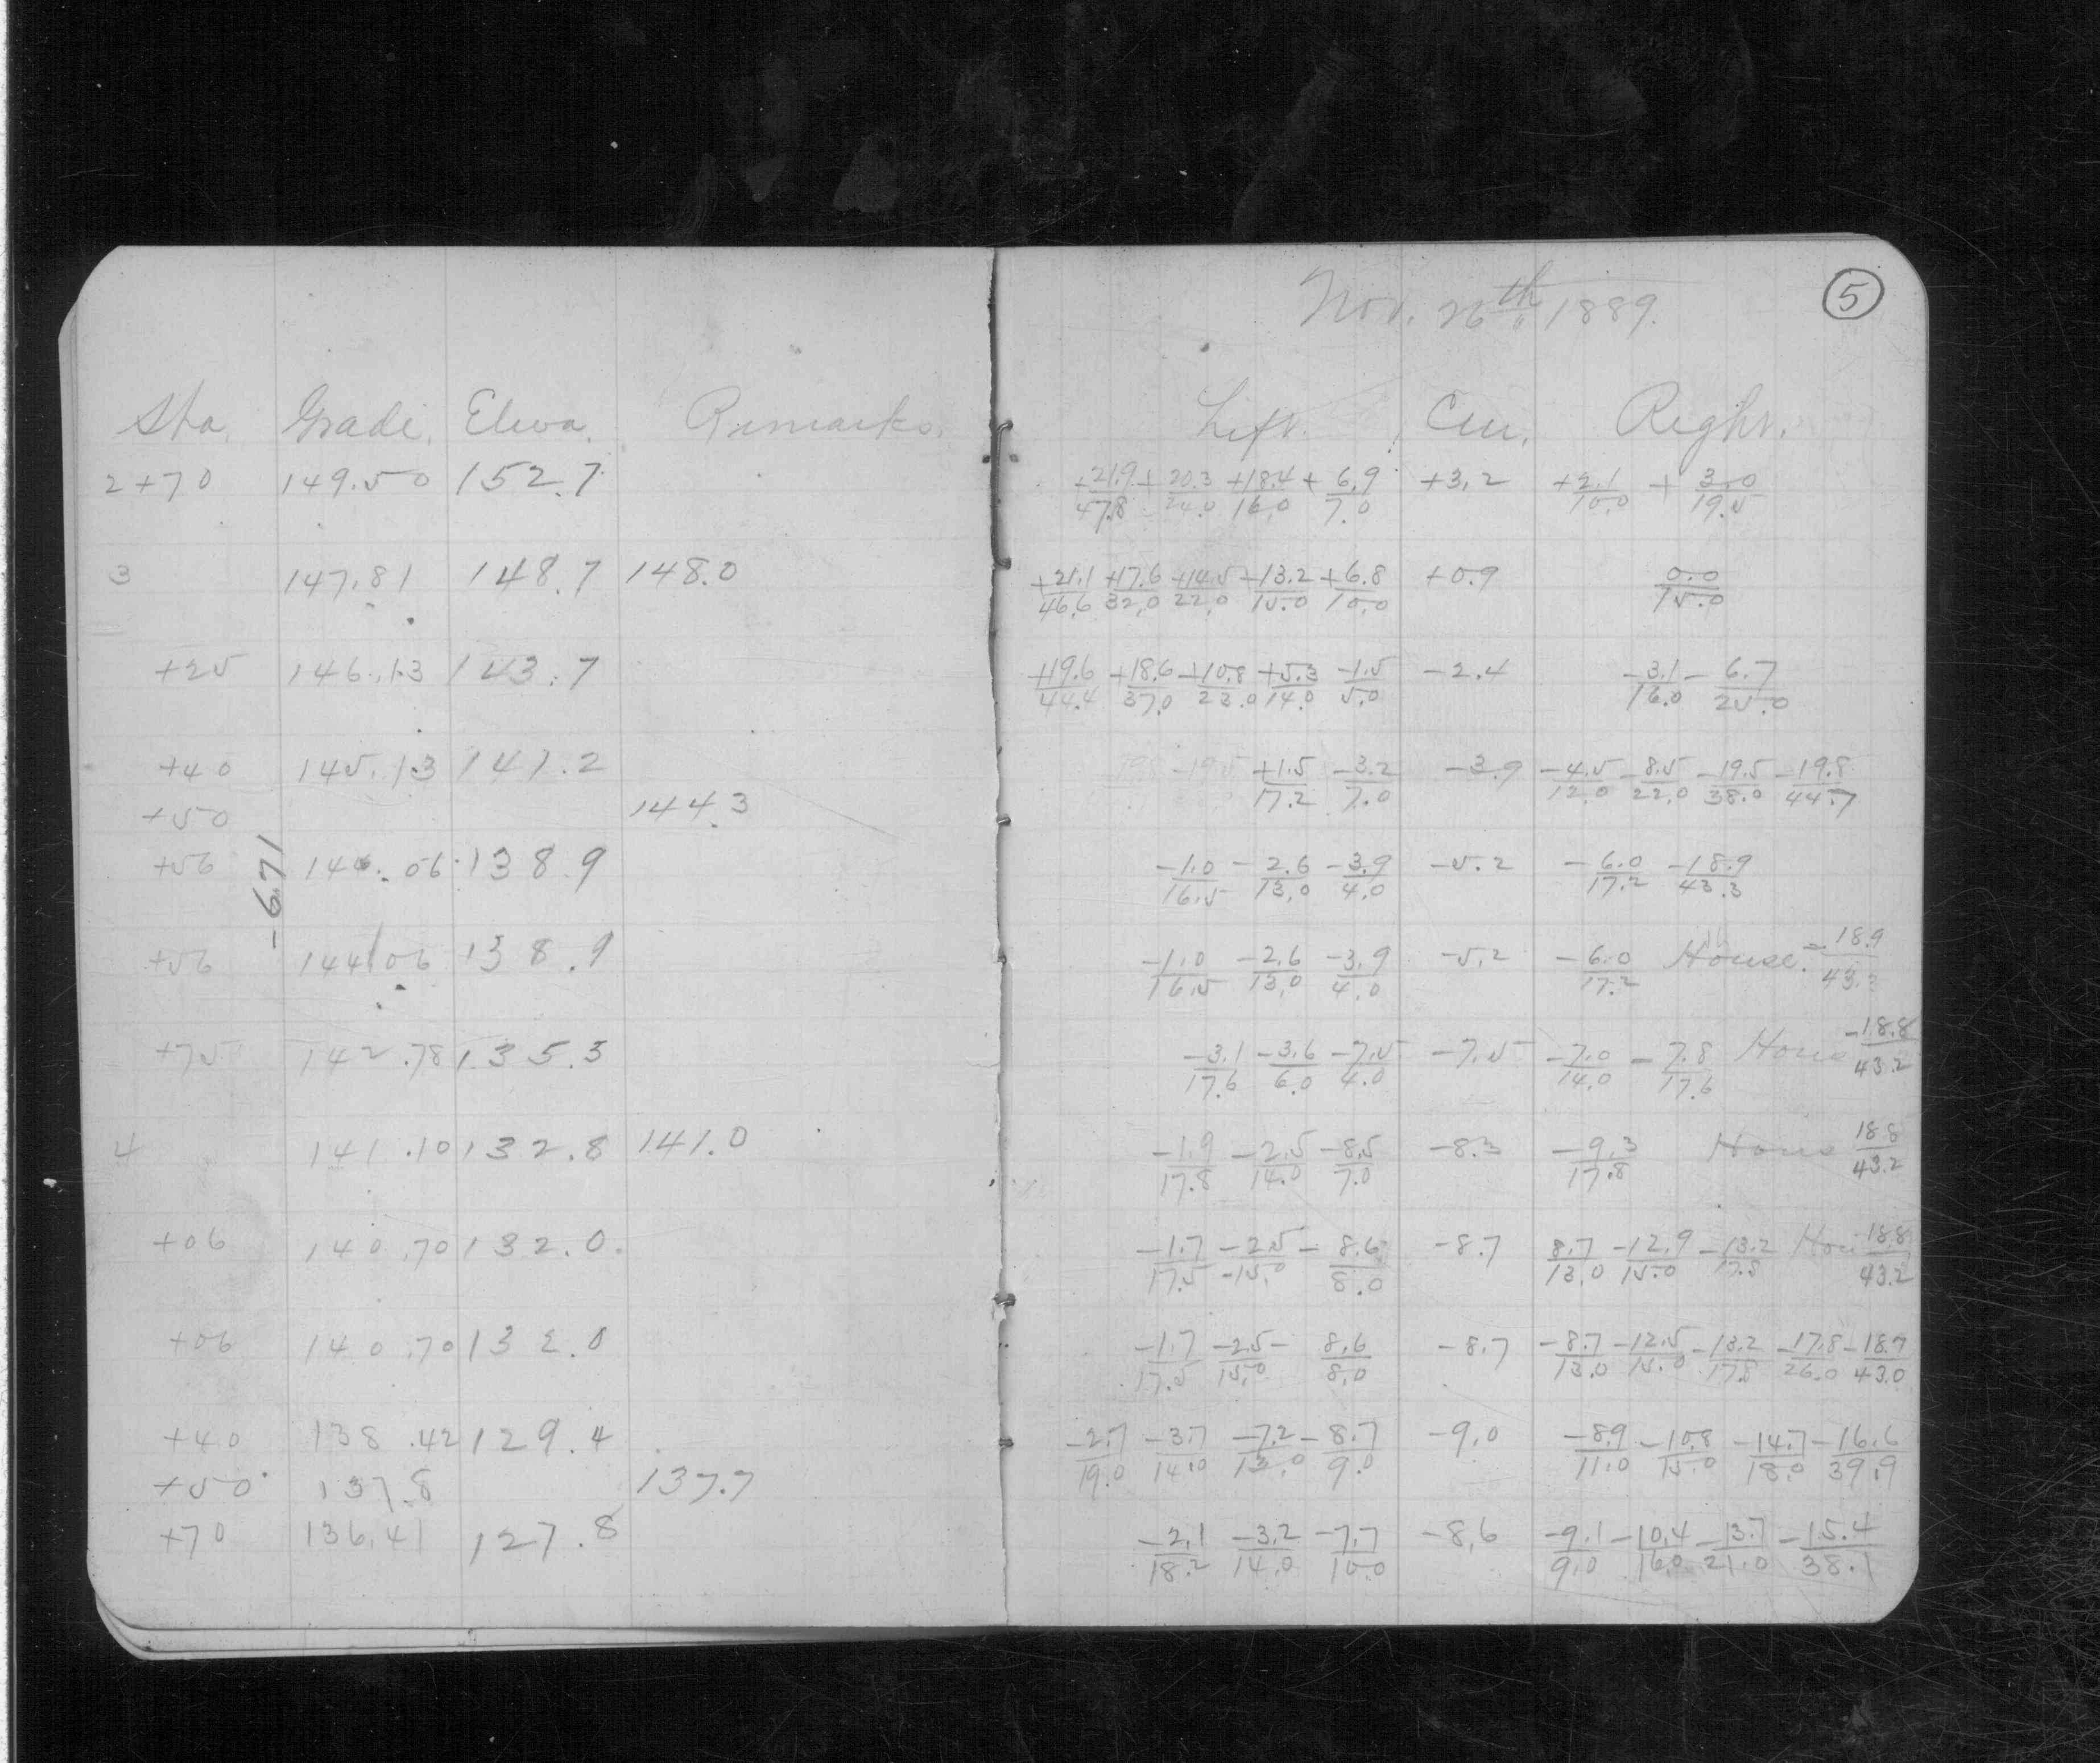 Nov. 26th 1889.
5
Sta. Grade. Eleva. Remarks. Left. Cen. Right.
2+70 149.50 152.7 +21.9/47.8 +20.3/24.0 +18.4/16.0 +6.9/7.0 +3.2 +2.1/10.0 +3.0/19.5
3 147.81 148.7 148.0 +21.1/46.6 +17.6/32.0 +14.5/22.0 +13.2/15.0 +6.8/10.0 +0.9 0.0/15.0
+25 146.13 143.7 +19.6/44.4 +18.6/37.0 +10.8/23.0 +5.3/14.0 -1.5/5.0 -2.4 -3.1/16.0 -6.7/25.0
+40 145.13 141.2 +1.5/17.2 -3.2/7.0 -3.9 -4.5/12.0 -8.5/22.0 -19.5/38.0 -19.8/44.7
+50 144.3
+56 144.06 138.9 -1.0/16.5 -2.6/13.0 -3.9/4.0 -5.2 -6.0/17.2 -18.9/43.3
-6.71
+56 144.06 138.9 -1.0/16.5 -2.6/13.0 -3.9/4.0 -5.2 -6.0/17.2 House. -18.9/43.3
+75 142.78 135.3 -3.1/17.6 -3.6/6.0 -7.5/4.0 -7.5 -7.0/14.0 -7.8/17.6 House -18.8/43.2
4 141.10 132.8 141.0 -1.9/17.8 -2.5/14.0 -8.5/7.0 -8.3 -9.3/17.8 House 18.8/43.2
+06 140.70 132.0 -1.7/17.5 -2.5/-15.0 -8.6/8.0 -8.7 8.7/13.0 -12.9/15.0 -13.2/17.8 Hou -18.8/43.2
+06 140.70 132.0 -1.7/17.5 -2.5/15.0 -8.6/8.0 -8.7 -8.7/13.0 -12.5/15.0 -13.2/17.8 -17.8/26.0 -18.7/43.0
+40 138.42 129.4 -2.7/19.0 -3.7/14.0 -7.2/13.0 -8.7/9.0 -9.0 -8.9/11.0 -10.8/15.0 -14.7/18.0 -16.6/39.9
+50 137.8 137.7
+70 136.41 127.8 -2.1/18.2 -3.2/14.0 -7.7/10.0 -8.6 -9.1/9.0 -10.4/16.0 -13.7/21.0 -15.4/38.1